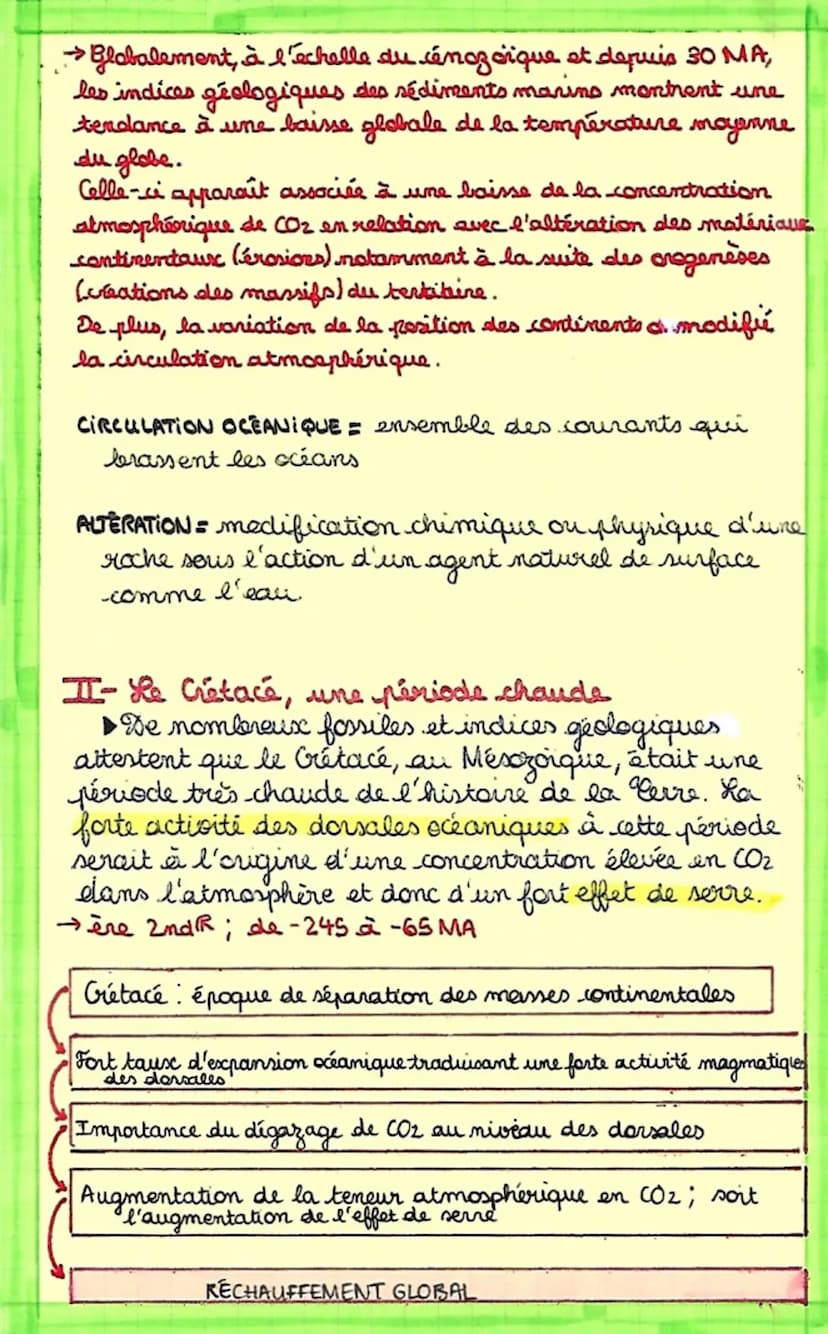 → Globalement, à l'échelle du cénozoïque et depuis 30 MA,
les indices géologiques des sédiments marins montrent une
tendance à une baisse globale de la température moyenne
du globe.
Celle-ci apparaît associée à une baisse de la concentration
atmosphérique de CO2 en relation avec l'altération des matériaux
continentaux (érosions) notamment à la suite des orogenèses
(créations des massifs) du tertiaire.
De plus, la variation de la position des continents a modifié
la circulation atmosphérique.
CIRCULATION OCÉANIQUE = ensemble des courants qui
brassent les océans
ALTÉRATION = modification chimique ou physique d'une
roche sous l'action d'un agent naturel de surface
comme l'eau.
II- Le Crétacé, une période chaude
▶ De nombreux fossiles et indices géologiques
attestent que le Crétacé, au Mésozoïque, était une
période très chaude de l'histoire de la Terre. La
forte activité des dorsales océaniques à cette période
serait à l'origine d'une concentration élevée en CO2
dans l'atmosphère et donc d'un fort effet de serre.
→ ère 2ndR ; de -245 à -65 MA
Crétacé : époque de séparation des masses continentales
Fort taux d'expansion océanique traduisant une forte activité magmatique
des dorsales
Importance du dégazage de CO2 au niveau des dorsales
Augmentation de la teneur atmosphérique en CO2 ; soit
l'augmentation de l'effet de serre
RÉCHAUFFEMENT GLOBAL